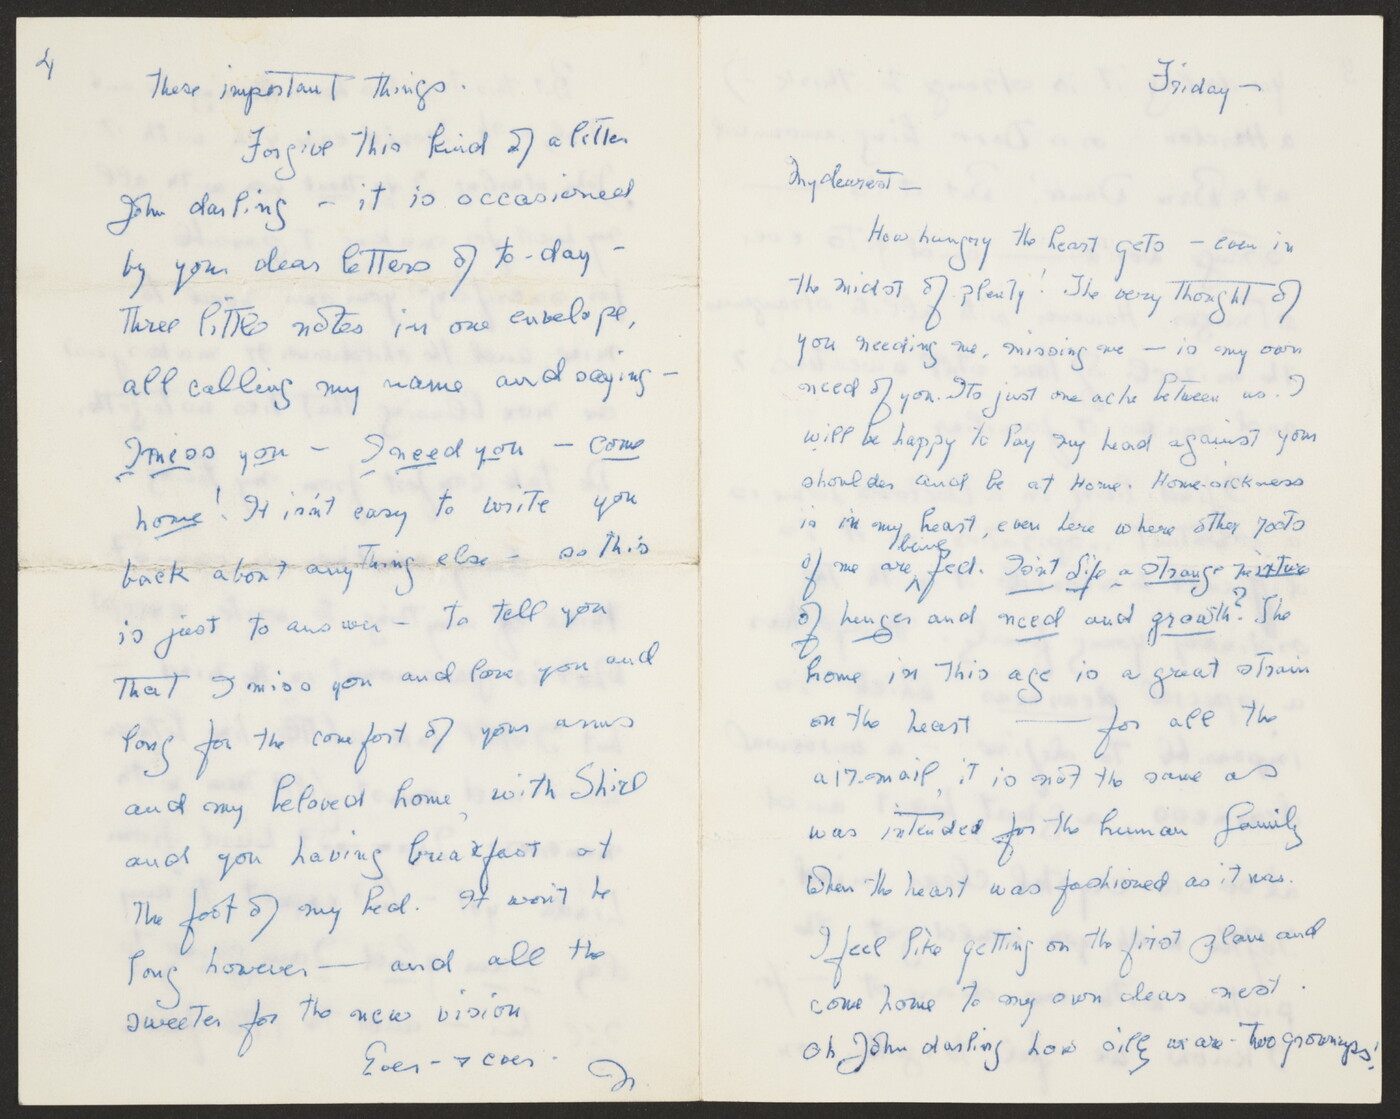 4
these important things.
Forgive this kind of a letter
John darling - it is occasioned
by your dear letters of to-day -
three little notes in one envelope,
all calling my name and saying -
I miss you - I need you - come
home! It isn't easy to write you
back about anything else - so this
is just to answer - to tell you
that I miss you and love you and
long for the comfort of your arms
and my beloved home, with Shirl
and you having breakfast at
the foot of my bed. It won't be
long however — and all the
sweeter for the new vision
Ever - & ever.
Friday -
My dearest -
How hungry the heart gets - even in
the midst of plenty! The very thought of
you needing me, missing me — is my own
need of you. Its just one ache between us. I
will be happy to lay my head against your
shoulder and be at Home. Home-sickness
is in my heart, even here where other roots
of me are being fed. Isn't life a strange mixture
of hunger and need and growth? The
home in this age is a great strain
on the heart — for all the
air-mail, it is not the same as
was intended for the human family
when the heart was fashioned as it was.
I feel like getting on the first plane and
come home to my own dear nest.
Oh John darling how silly we are - two grownups!